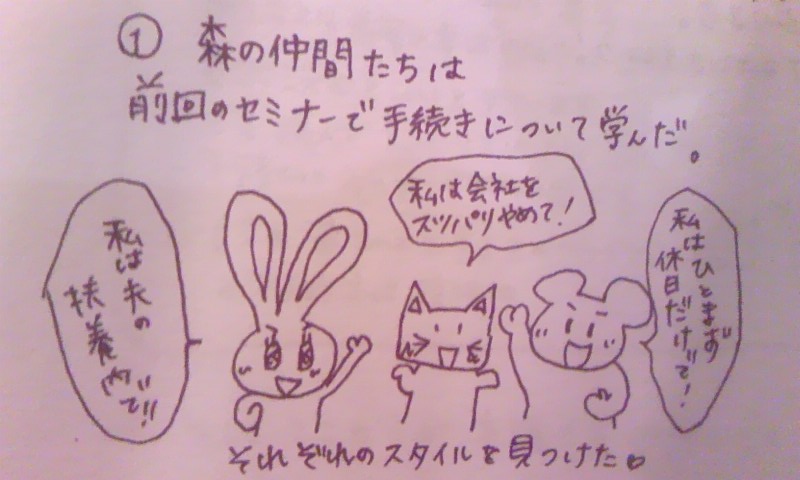 ① 森の仲間たちは
前回のセミナーで手続きについて学んだ。
私は夫の
扶養内で!!
私は会社を
スッパリやめて!
私はひとまず
休日だけで!
それぞれのスタイルを見つけた。